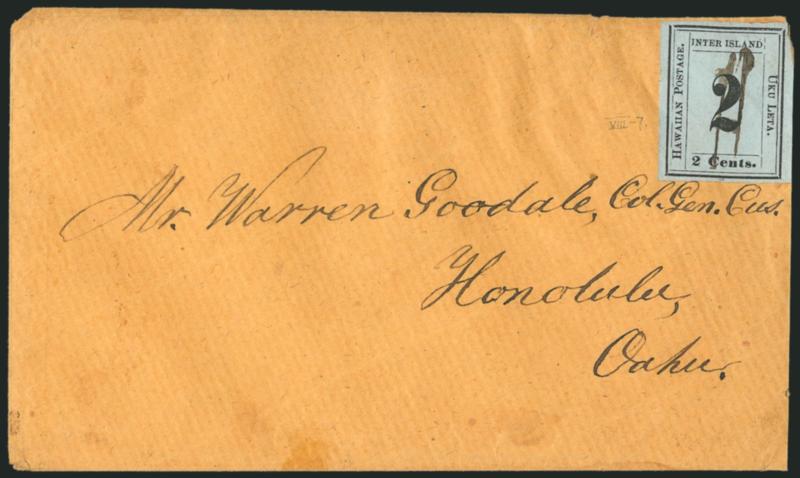 INTER ISLAND
HAWAIIAN POSTAGE.
2
UKU LETA.
2 Cents.
VIII-7.
Mr. Warren Goodale, Col. Gen. Cus.
Honolulu,
Oahu.